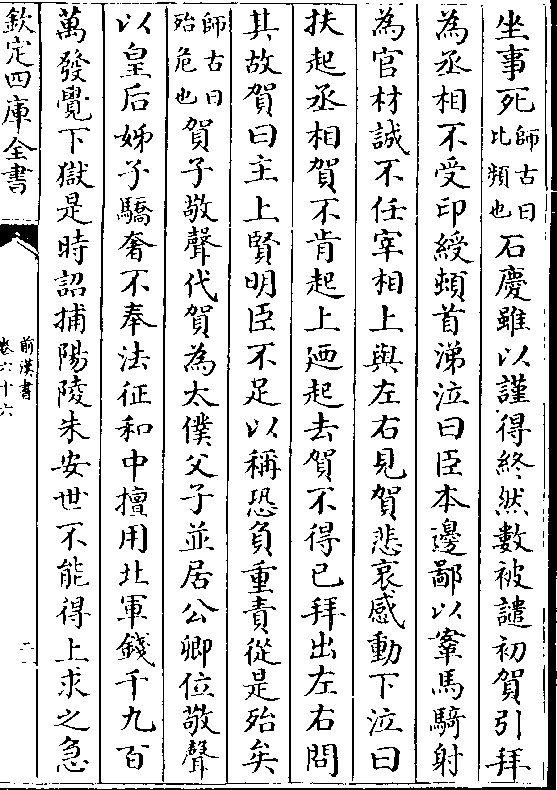 坐事死師古曰比頻也石慶雖以謹得終然數被譴初賀引拜
為丞相不受印綬頓首涕泣曰臣本邊鄙以鞌馬騎射
為官材誠不任宰相上與左右見賀悲哀感動下泣曰
扶起丞相賀不肯起上廼起去賀不得已拜出左右問
其故賀曰主上賢明臣不足以稱恐負重責從是殆矣
師古曰殆危也賀子敬聲代賀為太僕父子並居公卿位敬聲
以皇后姊子驕奢不奉法征和中擅用北軍錢千九百
萬發覺下獄是時詔捕陽陵朱安世不能得上求之急
欽定四庫全書
前漢書
卷六十六
二